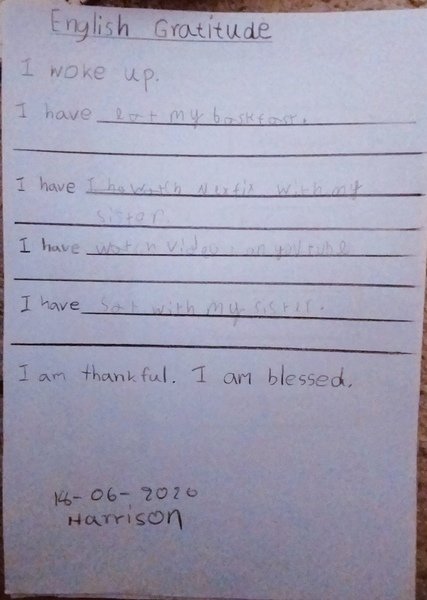 English Gratitude
I woke up.
I have eat my baskfast.
I have I ha watch Nexfix with my
sister.
I have watch videos on youtube
I have sat with my sister.
I am thankful. I am blessed.
16-06-2020
Harrison